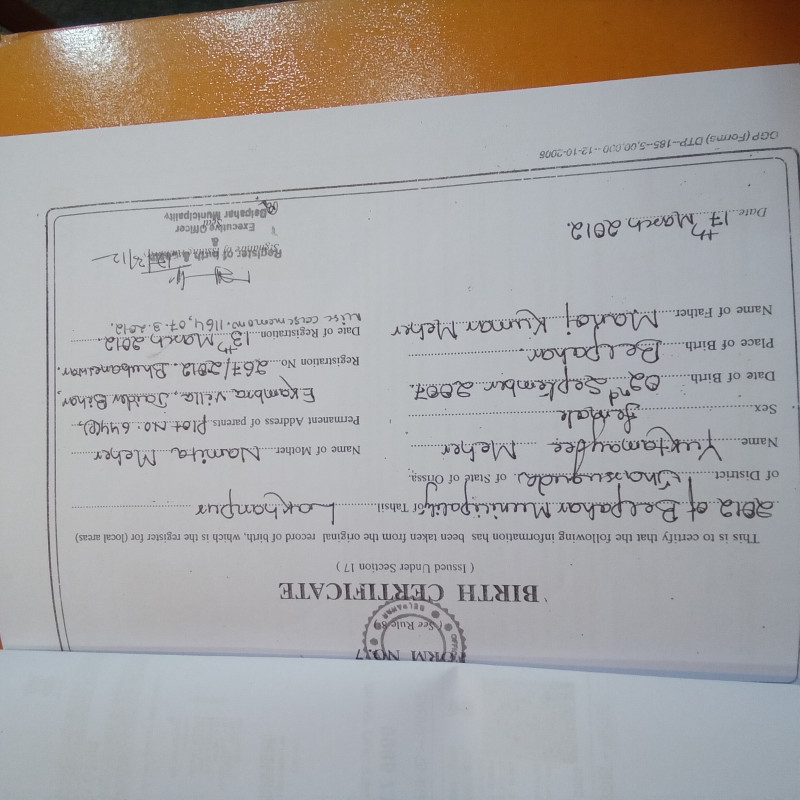 FORM NO.7
( See Rule 8)
BELPAHAR
BIRTH CERTIFICATE
( Issued Under Section 17 )
This is to certify that the following information has been taken from the original record of birth, which is the register for (local areas)
2012 of Belpahar Municipality of Tahsil Lakhanpur
of District Jharsuguda of State of Orissa.
Name Yuktamayee Meher
Name of Mother Namita Meher
Sex female
Permanent Address of parents. Plot No: 644(P),
Ekambra Villa, Jaidev Bihar,
Date of Birth 02nd September 2007.
Registration No. 267/2012. Bhubaneswar.
Place of Birth Belpahar.
Date of Registration 13th March 2012.
Name of Father Manoj Kumar Meher
case memo no. 1164, 07.3.2012.
Register of birth &
&
Executive Officer
Belpahar Municipality
Date 17th March 2012.
OGP (Forms) DTP–185–5,00,000–12-10-2006